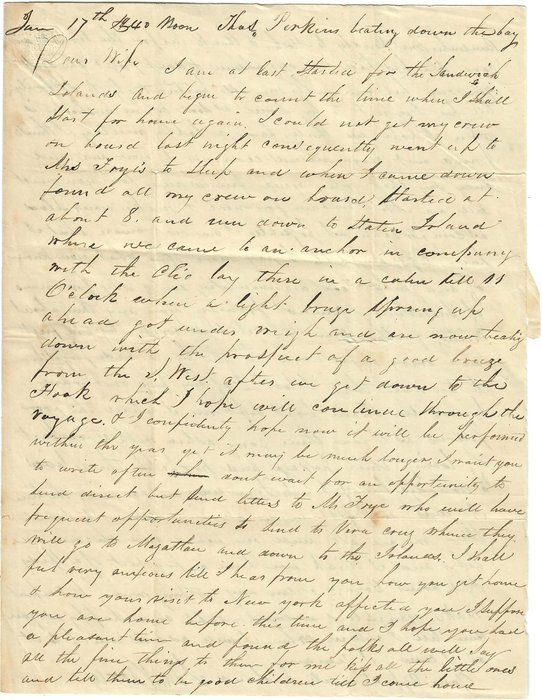 Jan 17th 1840 Noon Thos. Perkins beating down the bay
Dear Wife
I am at last started for the Sandwich
Islands and begin to count the time when I shall
start for home again. I could not get my crew
on board last night consequently went up to
Mrs Frye's to sleep and when I came down
found all my crew on board, started at
about 8. and run down to Staten Island
where we came to an anchor in company
with the Clio lay there in a calm till 11
O'clock when a light breeze sprung up
ahead got under weigh and are now beating
down with the prospect of a good breeze
from the N. West. after we get down to the
Hook which I hope will continue through the
voyage. & I confidently hope now it will be performed
within the year yet it may be much longer. I want you
to write often dont wait for an opportunity to
send direct but send letters to Mr Frye who will have
frequent opportunities to send to Vera cruz whence they
will go to Mazatlan and down to the Islands. I shall
feel very anxious till I hear from you how you got home
& how your visit to New york affected you. I suppose
you are home before this time and I hope you had
a pleasant time and found the folks all well Say
all the fine things to them for me kiss all the little ones
and tell them to be good children till I come home